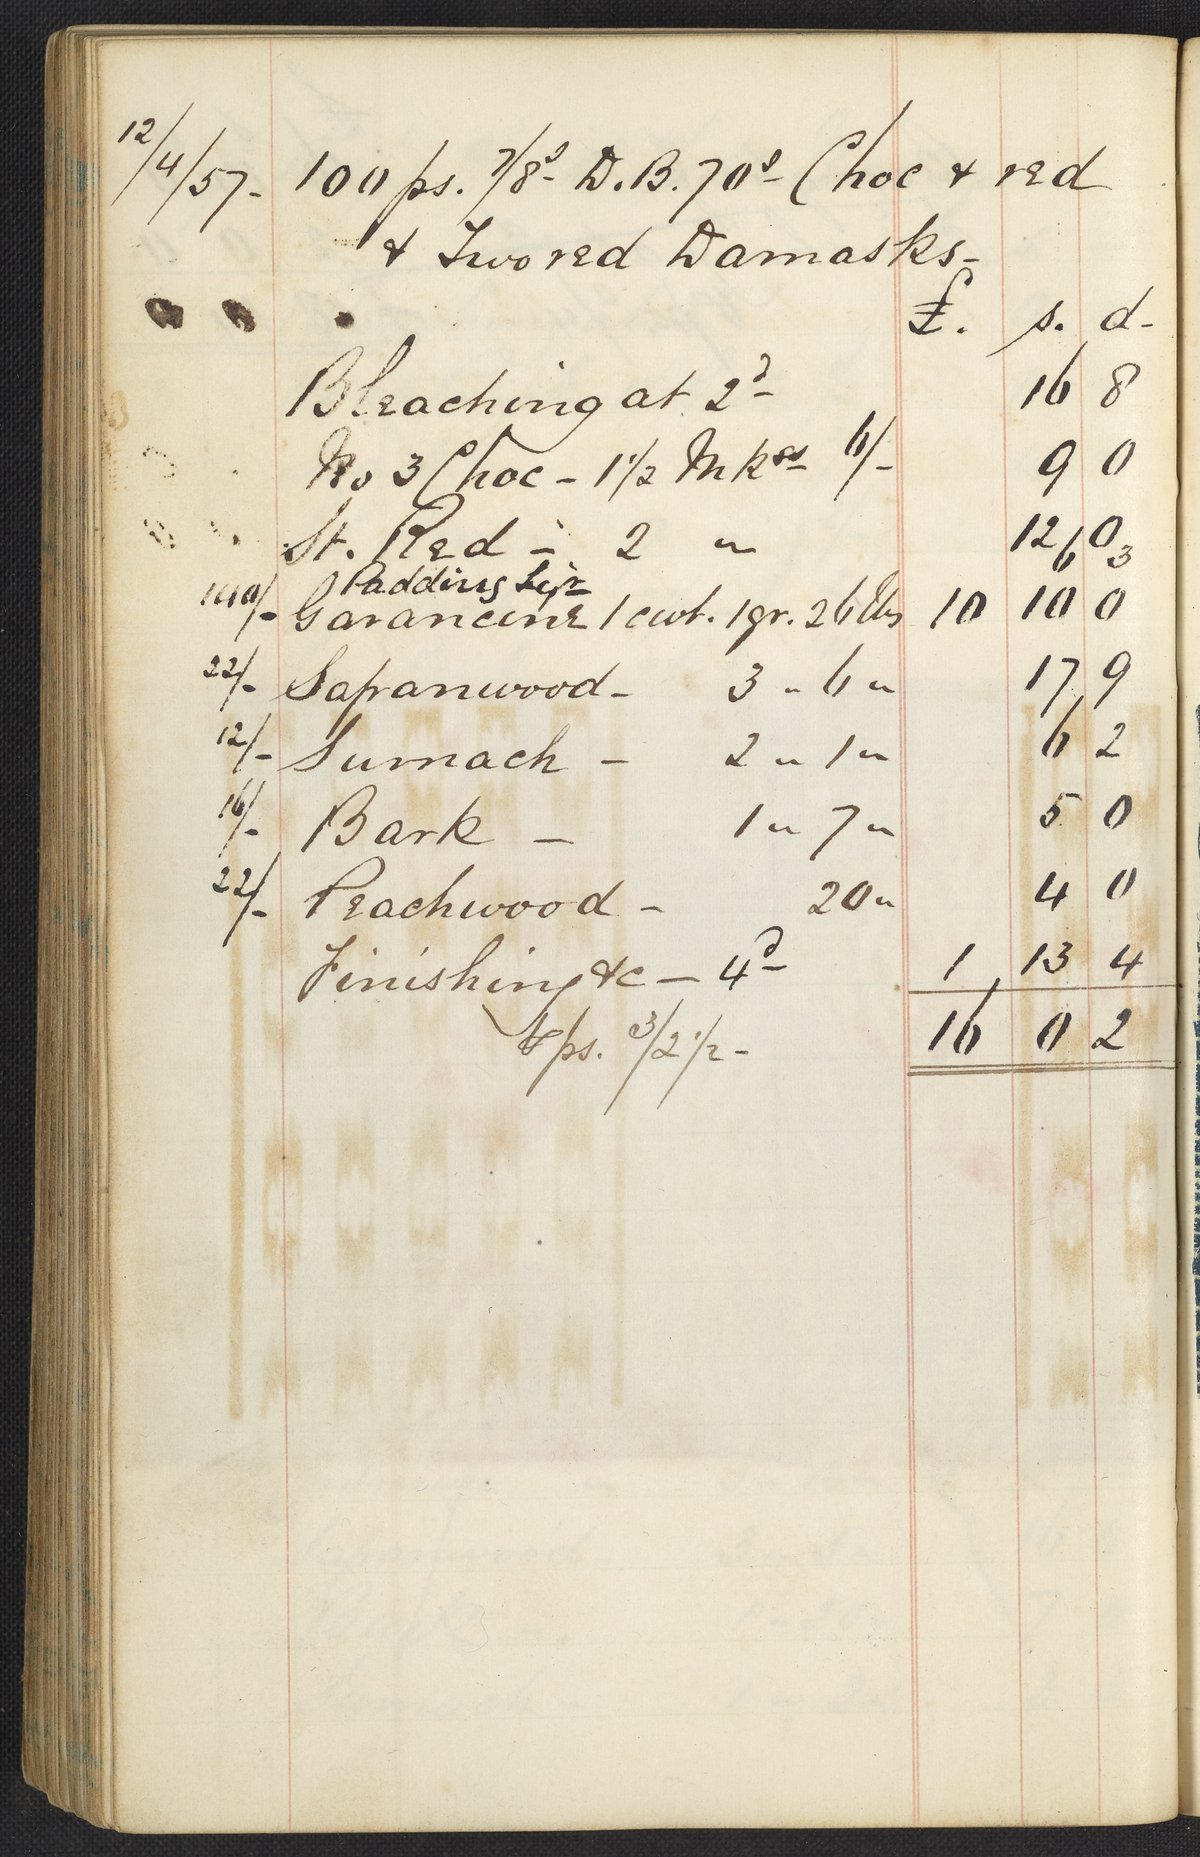 12/4/57- 100 ps. 7/8s D.B. 70s Choc & red
& Two red Damasks-
£. s. d-
Bleaching at 2d 16 8
No 3 Choc - 1 1/2 Mkss 6/- 9 0
St. Red - 2 " 12 0
Padding Liqr 6 3
140/- Garancine 1 cwt. 1 qr. 26 lbs 10 10 0
22/- Sapanwood - 3 " 6 " 17 9
12/- Sumach - 2 " 1 " 6 2
16/- Bark - 1 " 7 " 5 0
22/- Peachwood - 20 " 4 0
Finishing &c - 4d 1 13 4
16 0 2
ps. 3/2 1/2 -